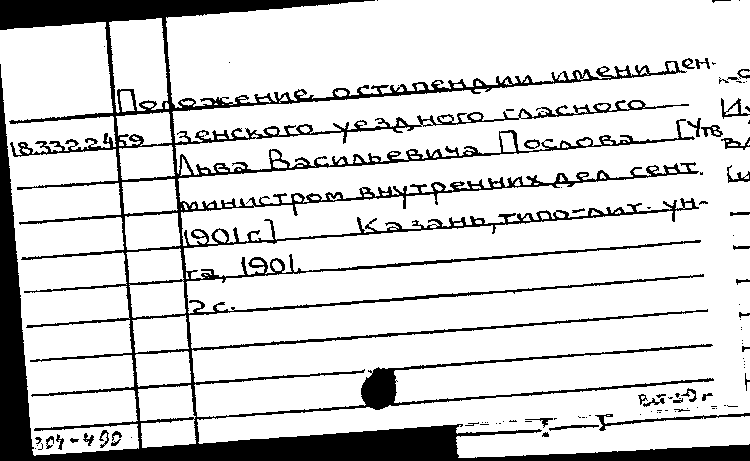 Положение о стипендии имени пен-
18.332.2.459 зенского уездного гласного
Льва Васильевича Послова. [Утв
министром внутренних дел сент.
1901 г.] Казань, типо-лит. ун-
та, 1901.
2 с.
304-490